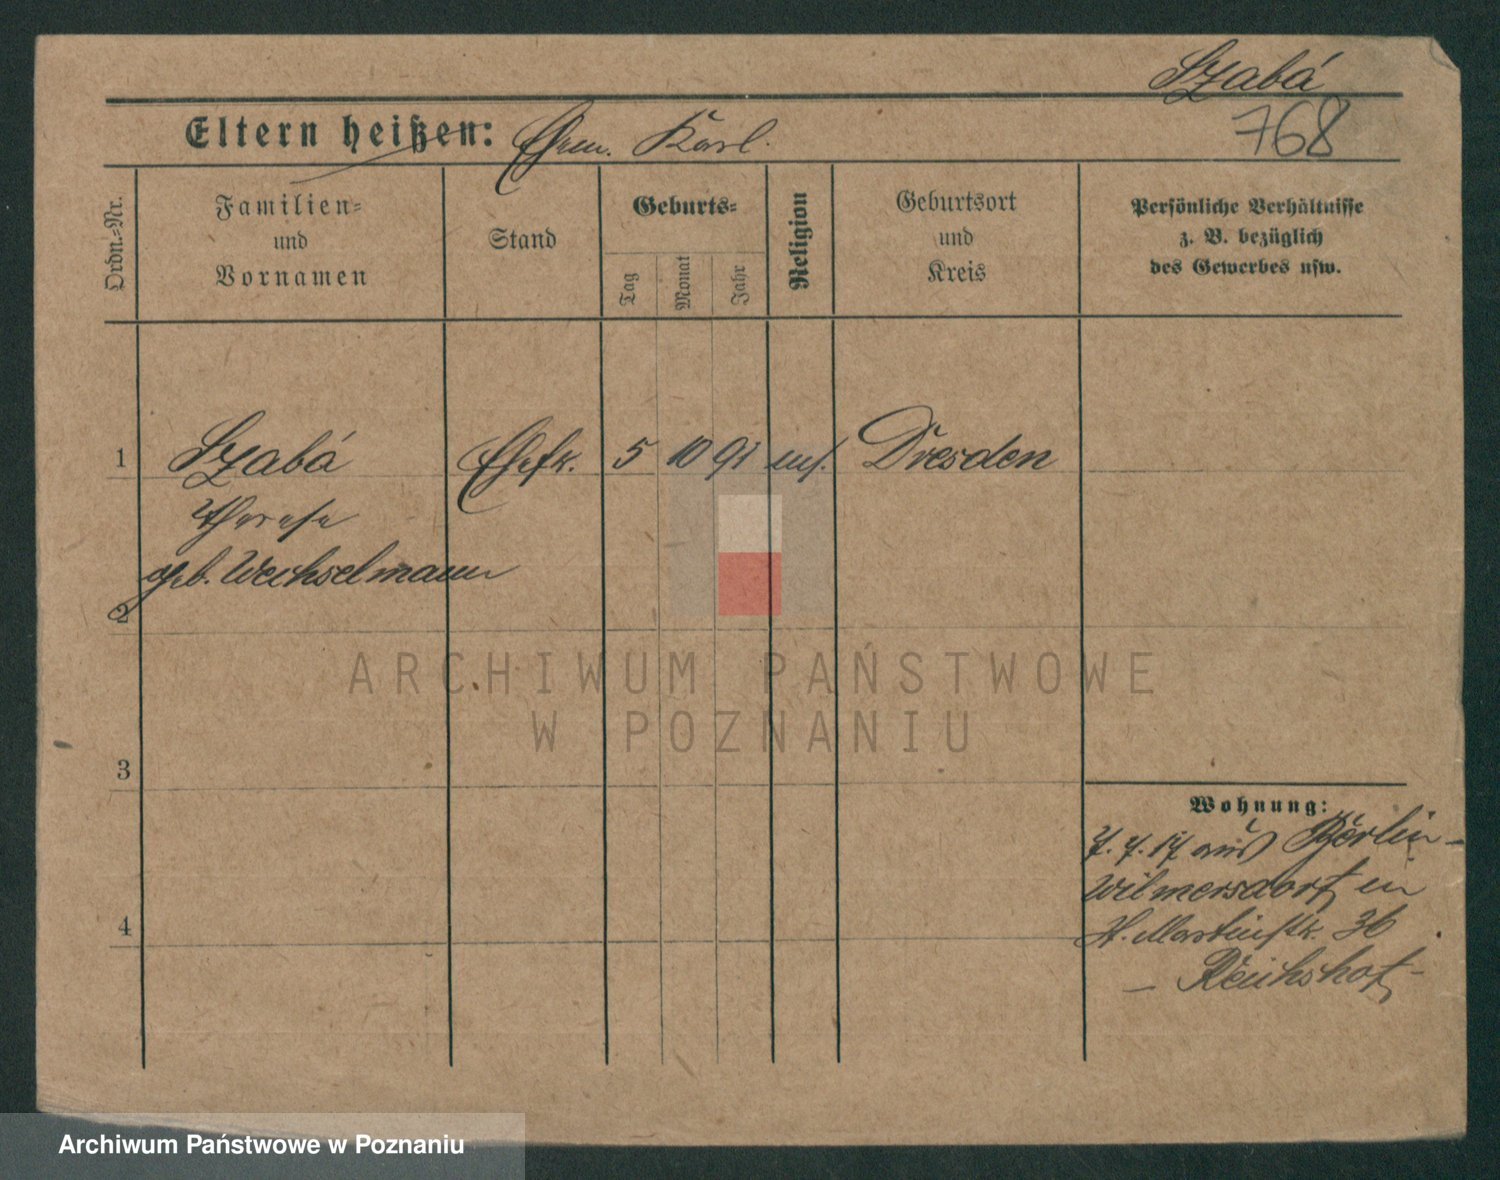 Szabá
768
Eltern heißen: Ehem. Karl.
Ordn.-Nr.
Familien-
und
Vornamen
Stand
Geburts-
Tag
Monat
Jahr
Religion
Geburtsort
und
Kreis
Persönliche Verhältnisse
z. B. bezüglich
des Gewerbes usw.
1 Szabá Ehefr. 5 10 91 Dresden
Therese
geb. Wechselmann
2
ARCHIWUM PAŃSTWOWE
W POZNANIU
3
Wohnung:
7. 7. 17 aus Berlin-
Wilmersdorf in
St. Martinstr. 36
4
– Reichshof –
Archiwum Państwowe w Poznaniu